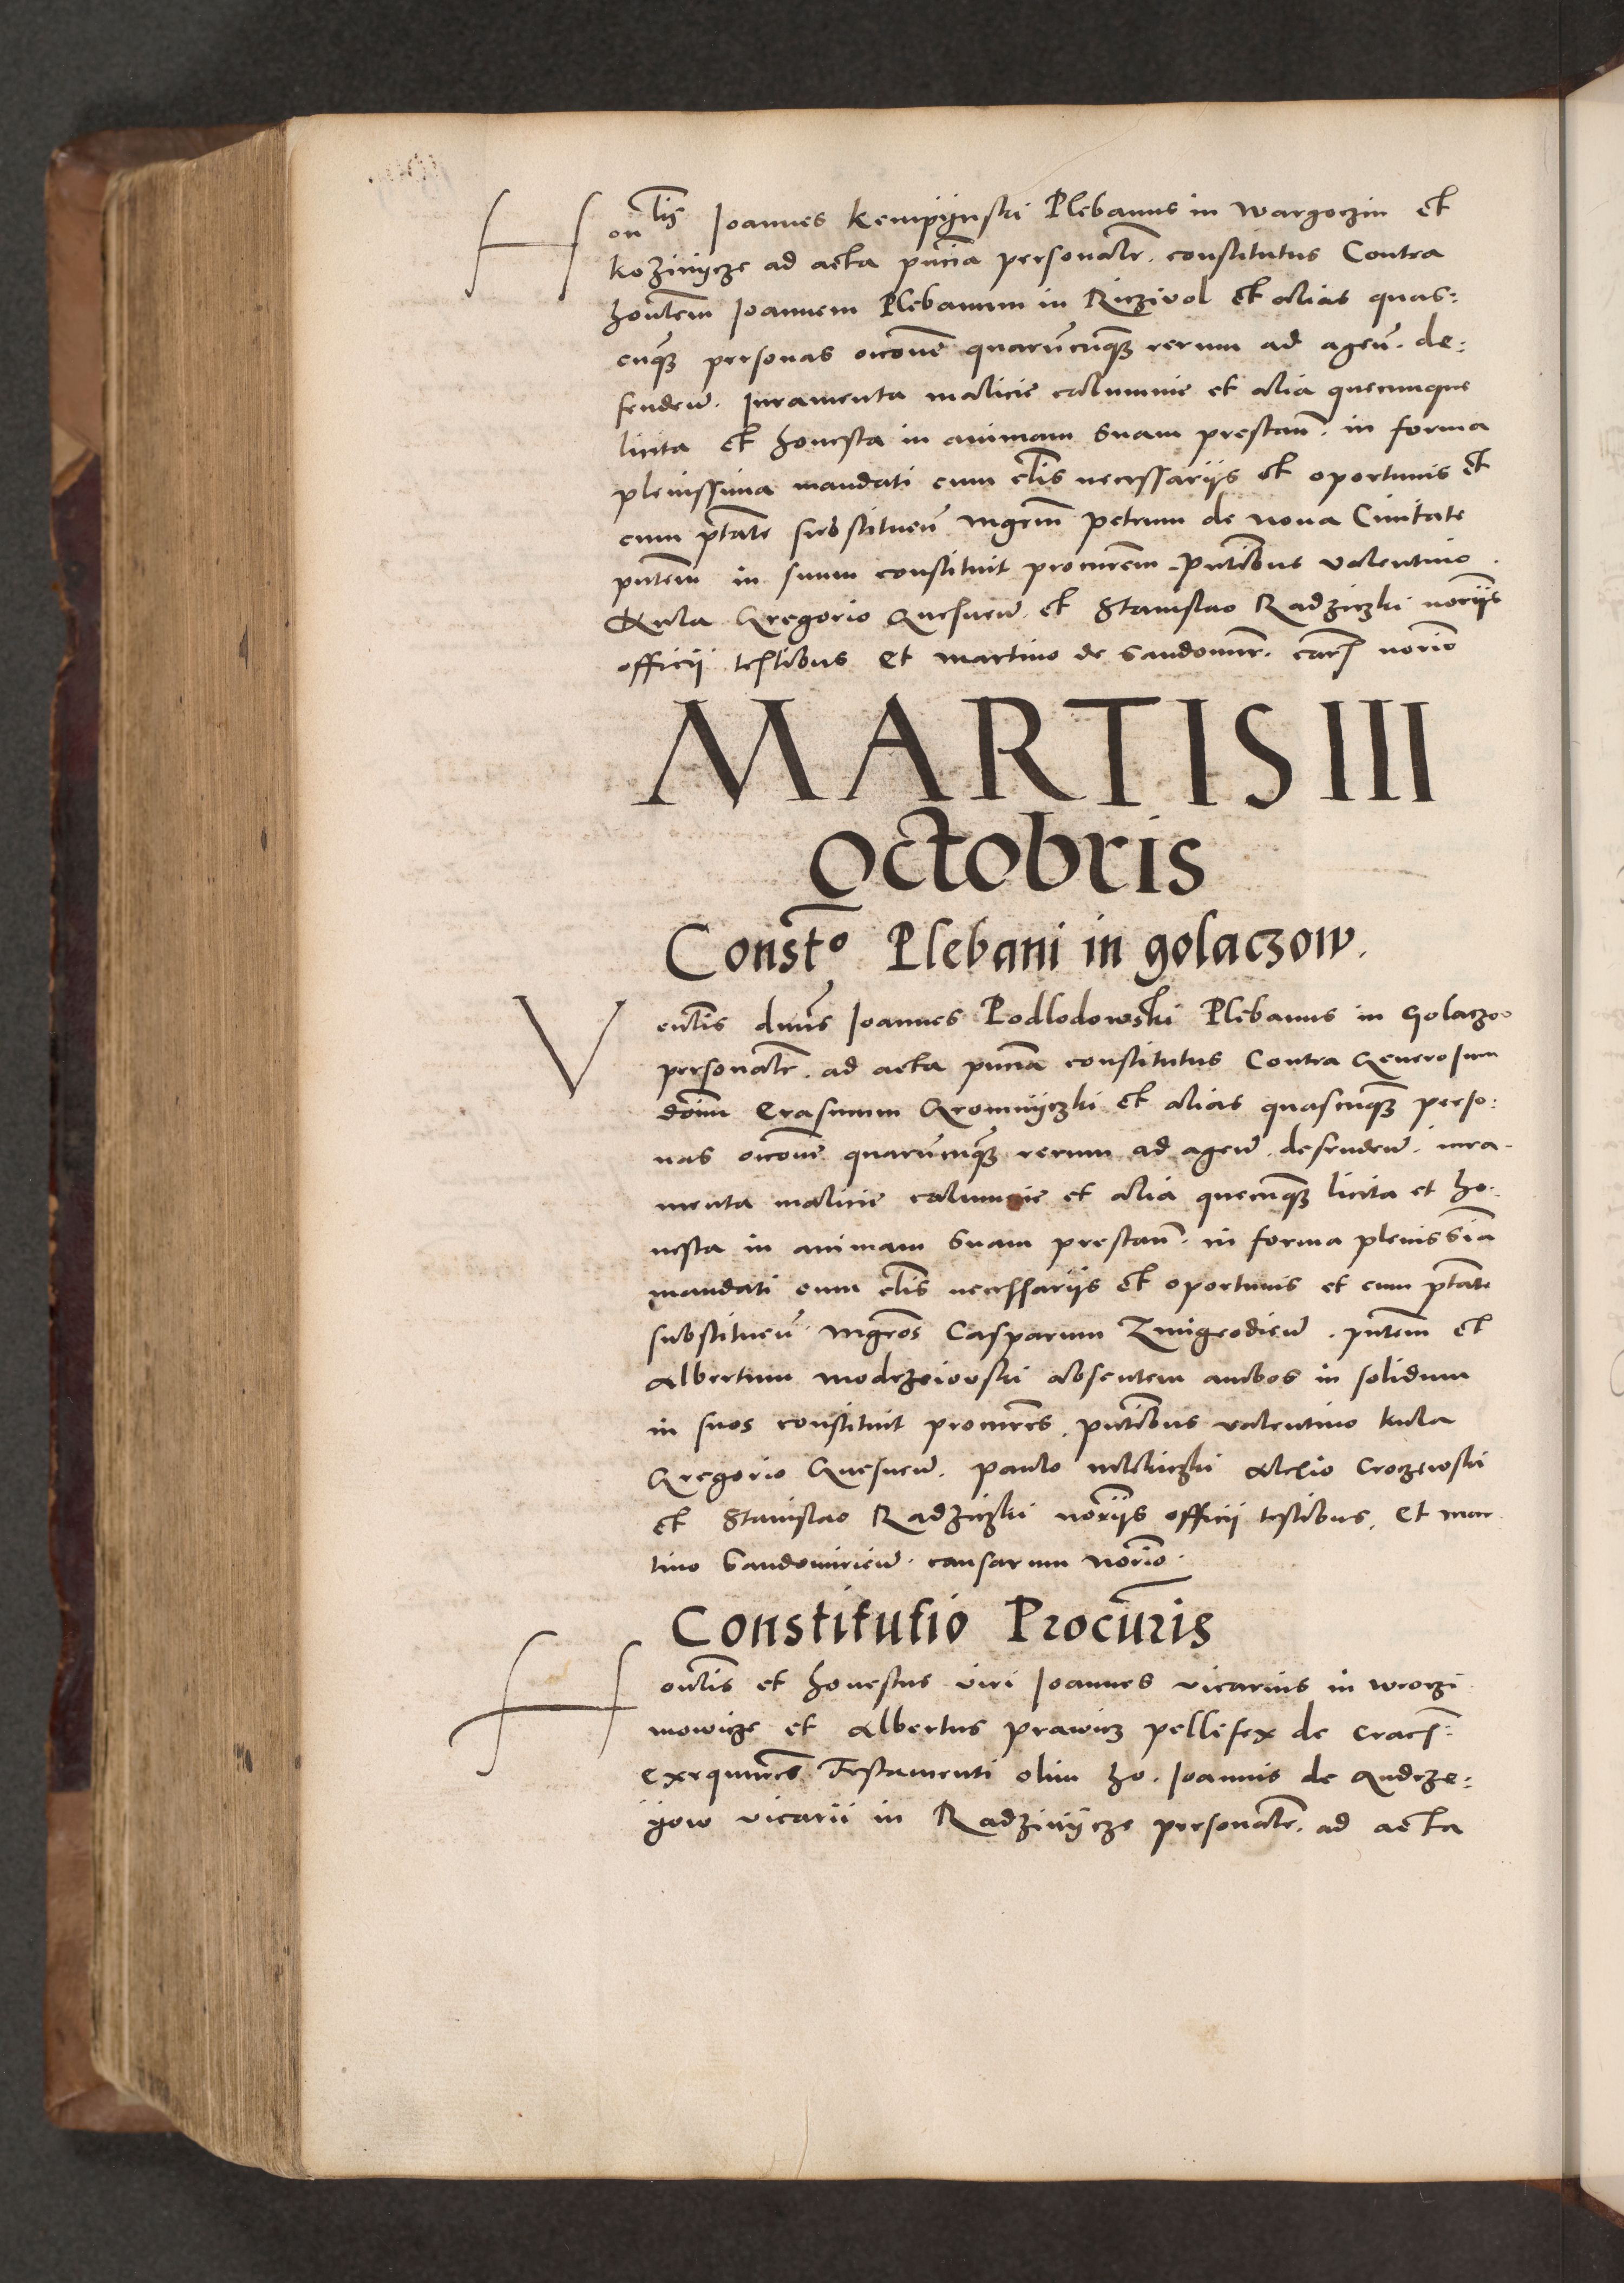 Hontis Joannes Kempijnski Plebanus in Wargoczin et
kozinijcze ad acta pncia personalr. constitutus Contra
hontem Joannem Plebanum in Riczivol et alias quas:
cunq3 personas occone quarucunq3 rerum ad agen. de:
fenden. Juramenta malicie calumnie et alia quecunque
licita et honesta in animam suam prestan. in forma
plenissima mandati cum clis necessariis et oportunis et
cum ptate substituen mgrm Petrum de nova Civitate
pntem in suum constituit procurem. pntibus valentino
Kula Gregorio Gnesnen et Stanislao Radziczki noriis
officii testibus et martino de Sandomir. cars norio
MARTIS III
octobris
Consto Plebani in golaczow.
Ventlis dnus Joannes Podlodowski Plebanus in Golaczo
personalr. ad acta pncia constitutus Contra Generosum
dom Erasmum Gromnijczki et alias quascunq3 perso:
nas occone quarucunq3 rerum ad agen. defenden. iura
menta malicie calumnie et alia quecunq3 licita et ho.
nesta in animam suam prestan. in forma plenissia
mandati cum clis necessariis et oportunis et cum ptate
substituen. mgros Casparum Zmigrodien. pntem et
Albertum modrzeiovski absentem ambos in solidum
in suos constituit procures. pntibus valentino kula
Gregorio Gnesnen. paulo Alexio Croczewski
et Stanislao Radziczki noriis officii testibus. Et mar
tino Sandomirien. causarum norio.
Constitutio Procuris
Hontlis et honestus viri Joannes vicarius in wroczi
mowicze et Albertus prawicz pellifex de Crac.
Exequutores Testamenti olim ho. Joannis de Andrze:
ijow vicarii in Radzinijcze personalr. ad acta